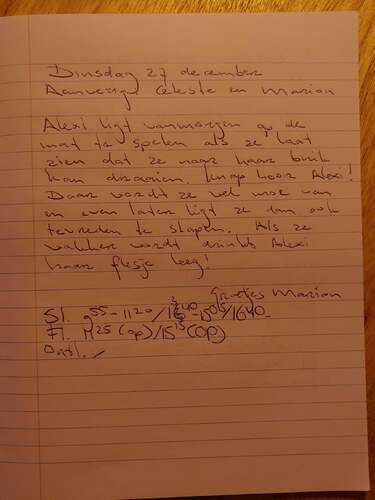 Dinsdag 27 december
Aanwezig Celeste en Marian
Alexi ligt vanmorgen op de
mat te spelen als ze laat
zien dat ze naar haar buik
kan draaien. Knap hoor Alexi!
Daar wordt ze wel moe van
en even later ligt ze dan ook
tevreden te slapen. Als ze
wakker wordt drinkt Alexi
haar flesje leeg!
Groetjes Marian
Sl. 9⁵⁵ - 11²⁰ / - 15⁰⁵/16⁴⁰ -
Fl. 11²⁵ (op) / 15¹⁵ (op)